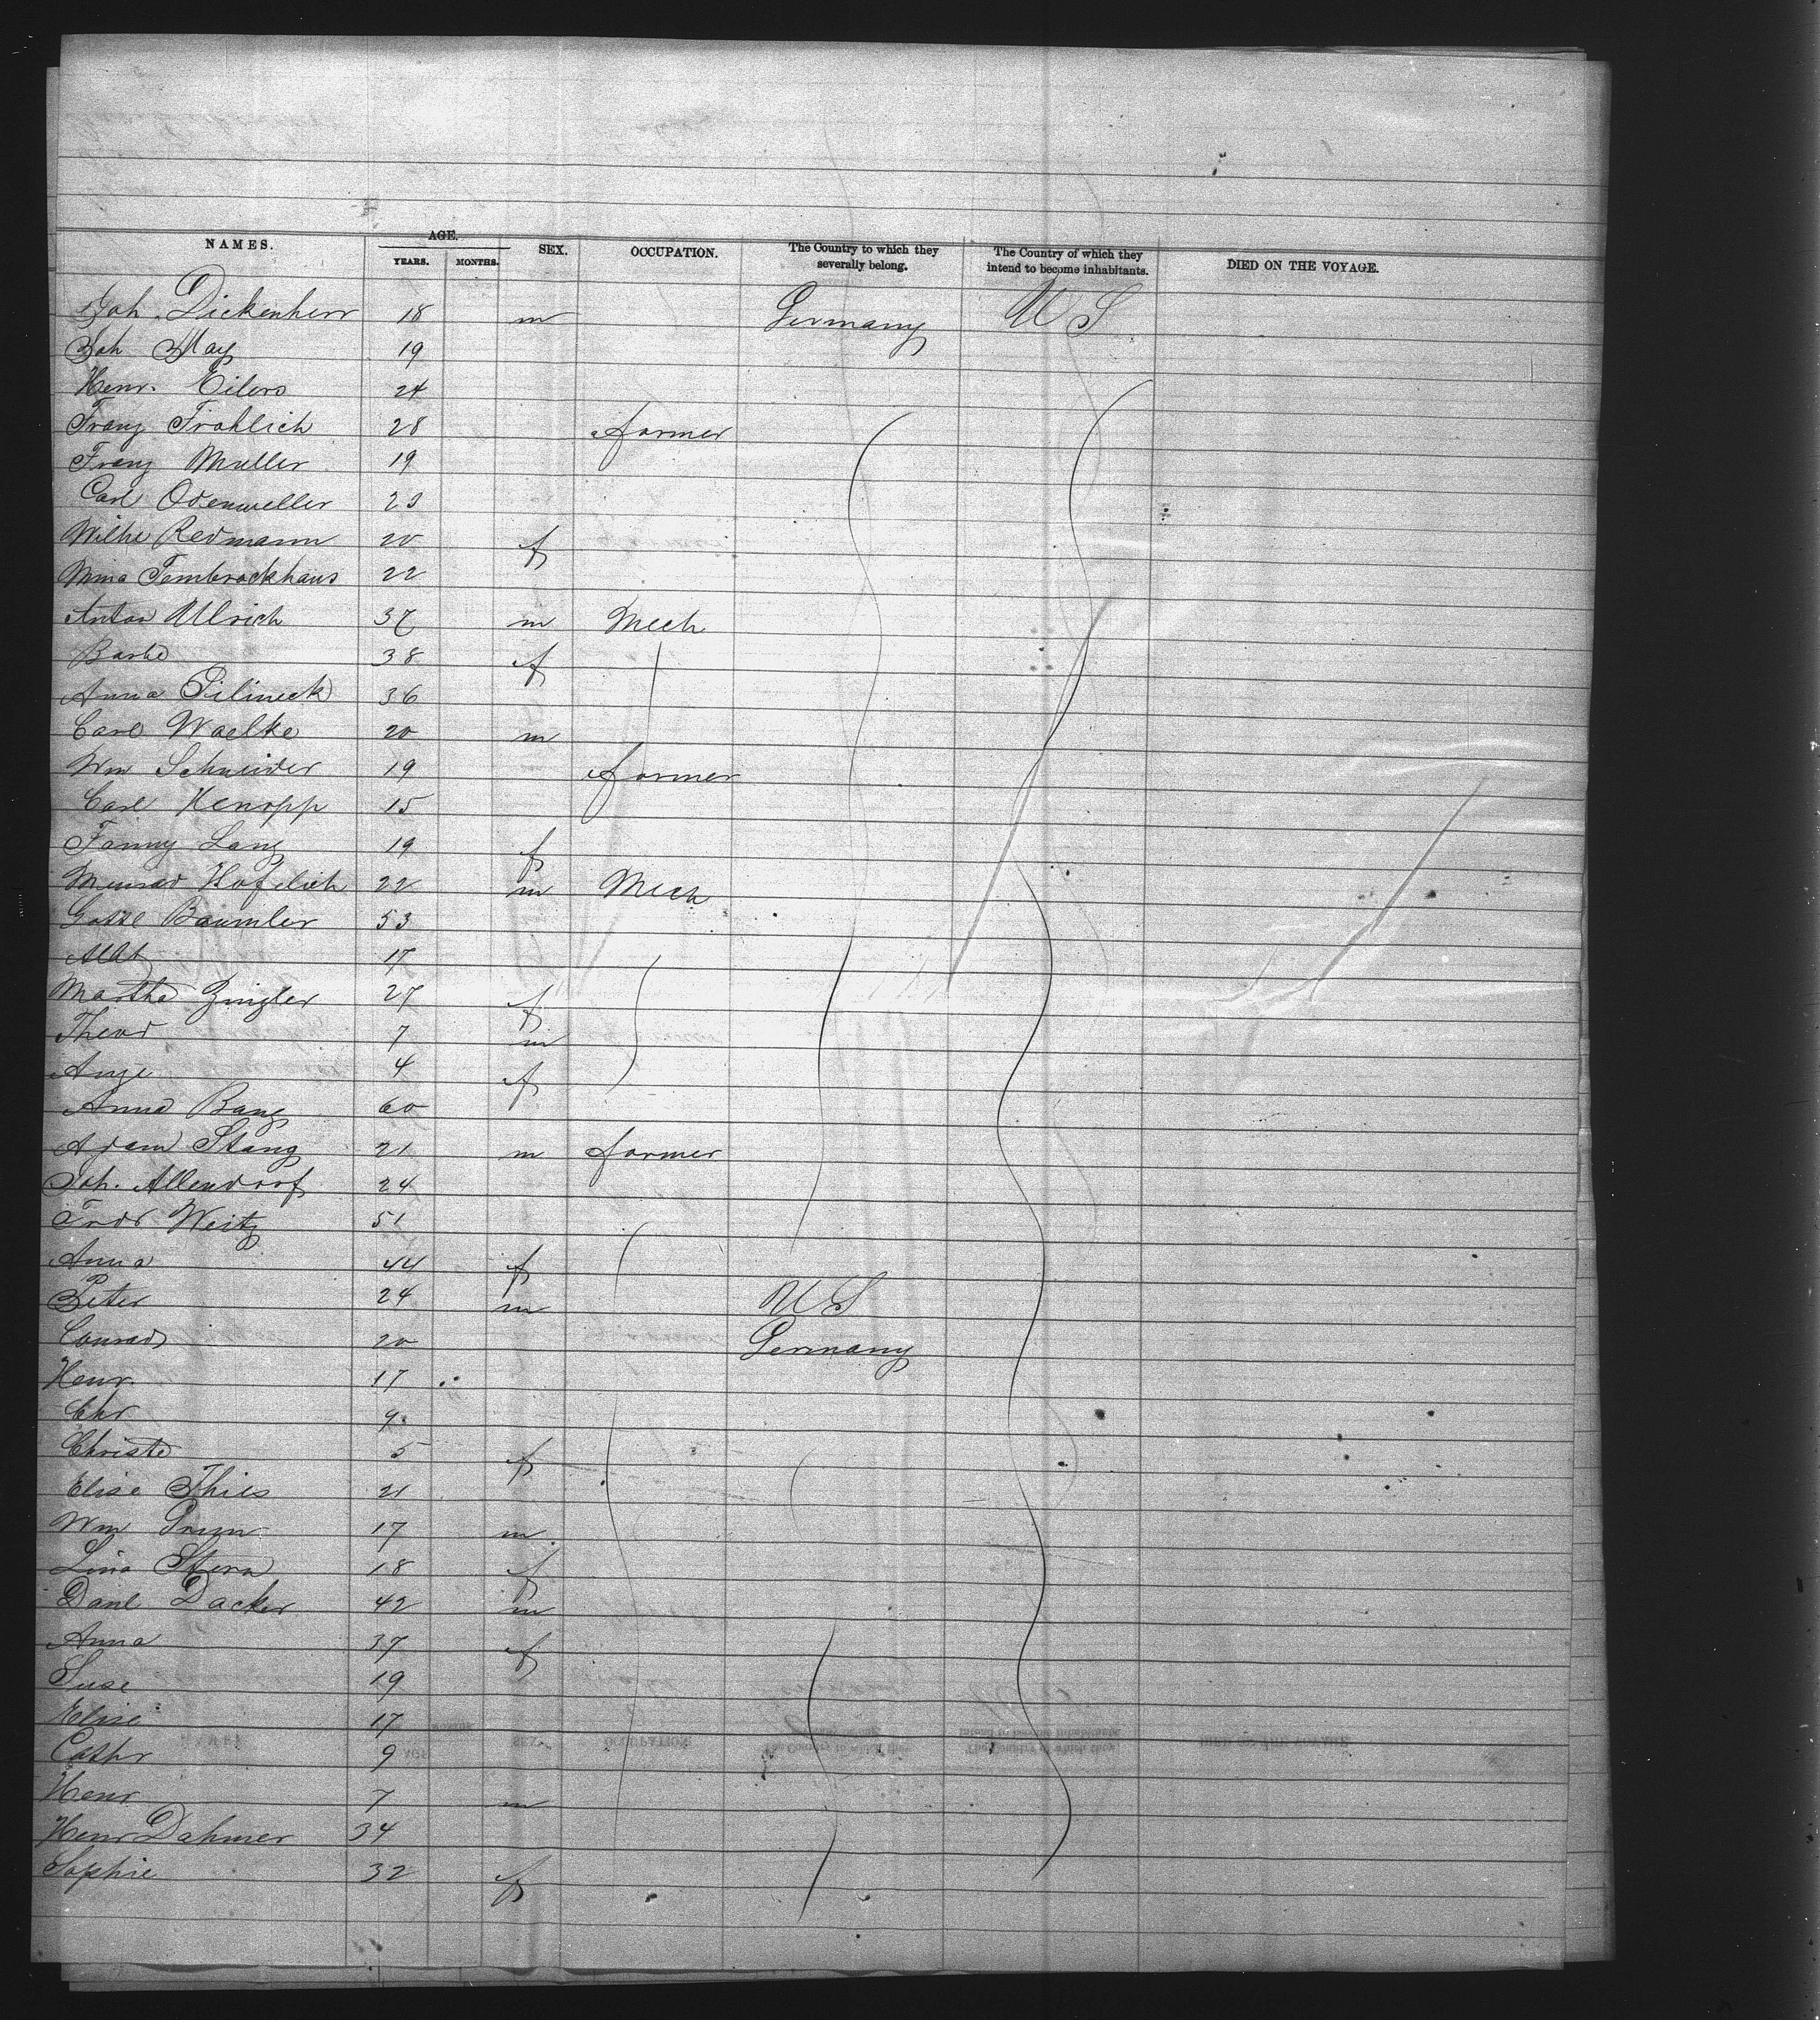 NAMES. AGE. YEARS. MONTHS. SEX. OCCUPATION. The Country to which they severally belong. The Country of which they intend to become inhabitants. DIED ON THE VOYAGE.
Joh. Dickenherr 18 m Germany U S
Joh May 19
Henr. Eilers 24
Franz Frohlich 28 farmer
Franz Muller 19
Carl Odenweller 23
Wilhe Redmann 20 f
Mina Tembrockhaus 22
Anton Ullrich 37 m Mech
Barbe 38 f
Anna Pilineck 36
Carl Waelke 20 m
Wm Schneider 19 farmer
Carl Henopp 15
Fanny Lang 19 f
Meinrad Hofelich 22 m Mech
Baumler 53
17
Martha Zingler 27 f
Theod 7 m
4 f
Anna Bang 60
Adam Stang 21 m farmer
Joh. Allendorf 24
Fredr Weitz 51
Anna 44 f
Peter 24 m U S
Conrad 20 Germany
Henr. 17
Chr 9
Christe 5 f
Elise Thies 21
Wm 17 m
Lina Stern 18 f
Danl Dacker 42 m
Anna 37 f
Suse 19
Elise 17
Cathr 9
Henr 7 m
Henr Dahmer 34
Sophie 32 f